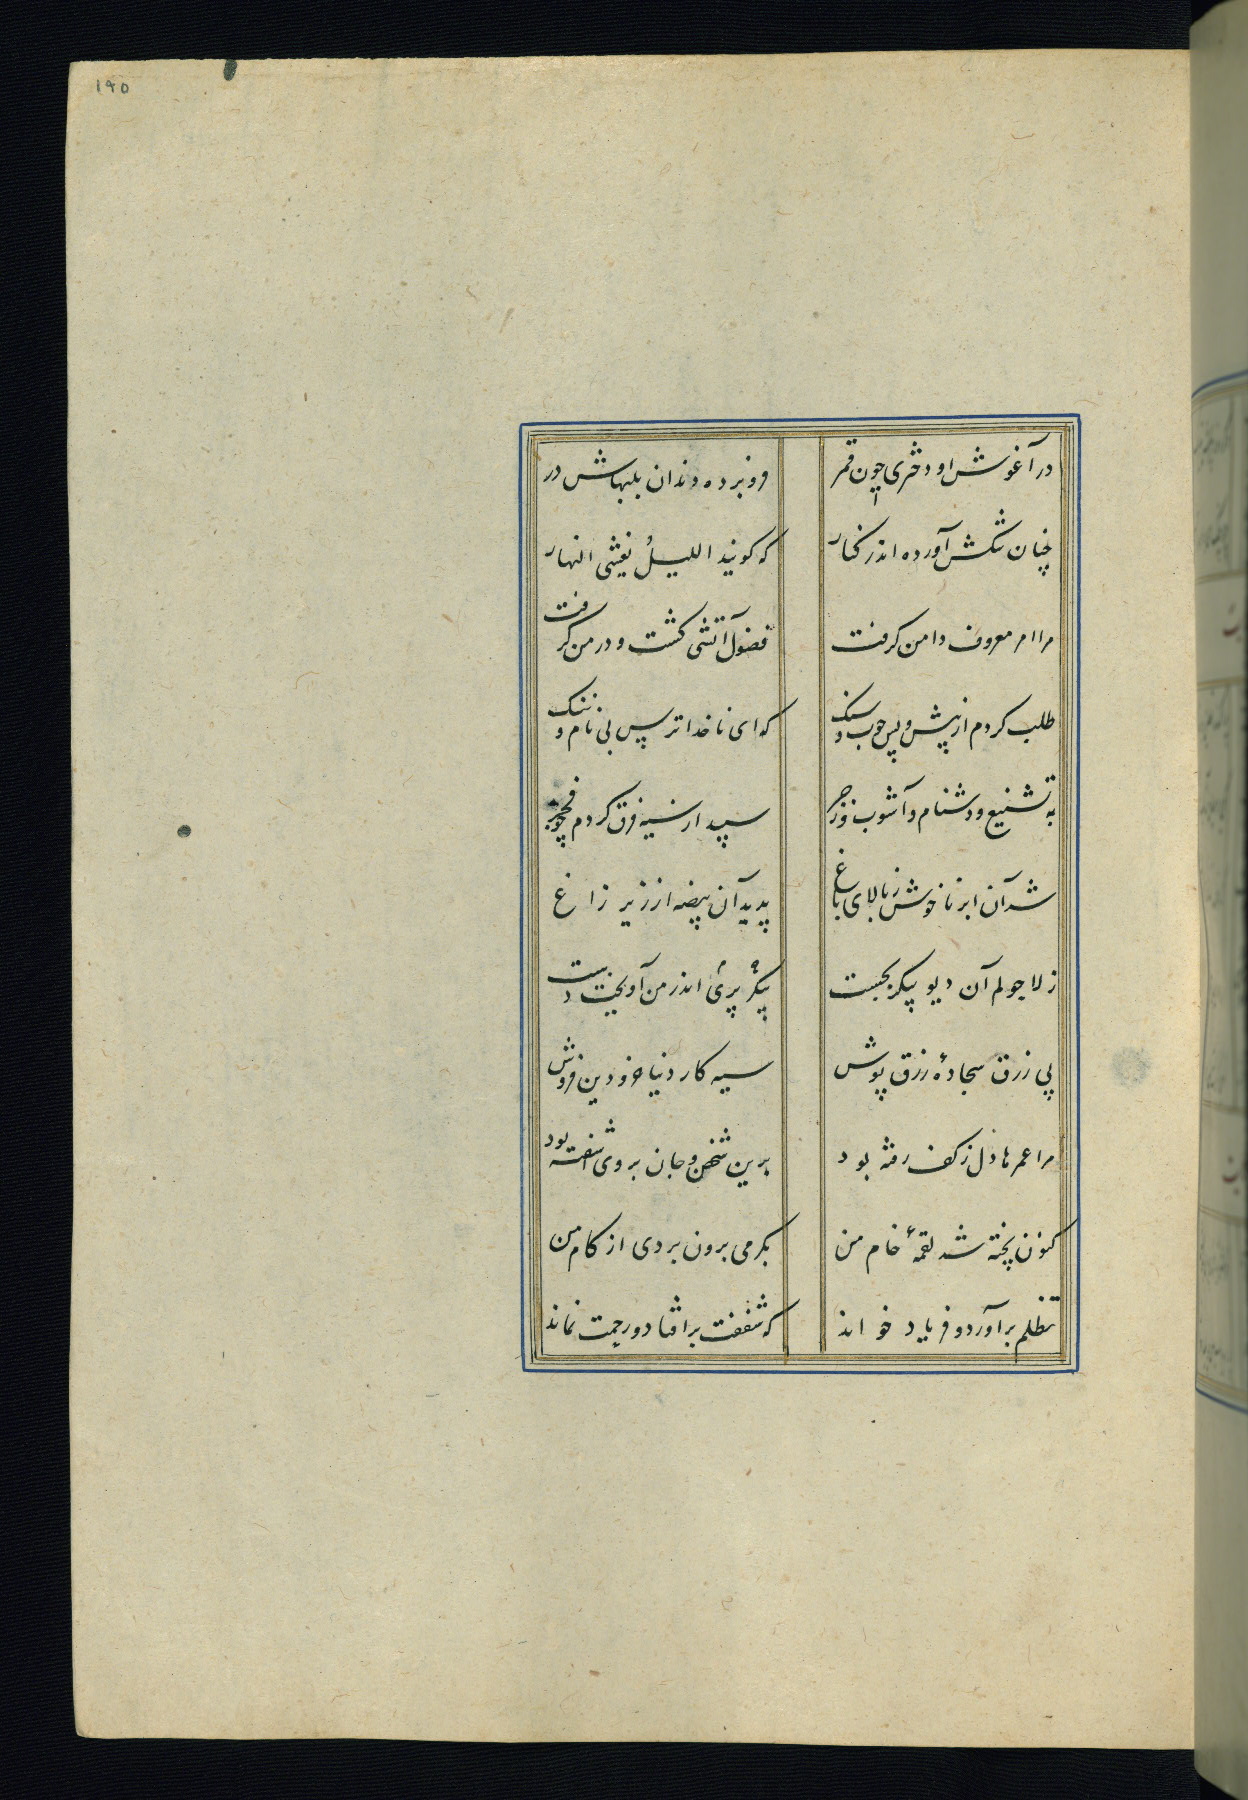 ۱۹۵
در آغوش او دختری چون قمر فرو برده دندان بلبهاش در
چنان تنگش آورده اندر کنار که گویند اللیل یغشی النهار
مرا امر معروف دامن گرفت فضول آتشی گشت و در من گرفت
طلب کردم از پیش و پس چوب و سنگ که ای ناخداترس بی نام و ننگ
به تشنیع و دشنام و آشوب و زجر سپید از سیه فرق کردم چو فجر
شد آن ابر ناخوش ز بالای باغ پدید آن بیضه از زیر زاغ
ز لاحولم آن دیو پیکر بجست پری پیکر اندر من آویخت دست
پی زرق سجادهٔ زرق پوش سیه کار دنیا خر و دین فروش
مرا عمرها دل ز کف رفته بود برین شخص و جان بر وی آشفته بود
کنون پخته شد لقمهٔ خام من بگرمی برون بردی از کام من
تظلم برآورد و فریاد خواند که شفقت برافتاد و رحمت نماند